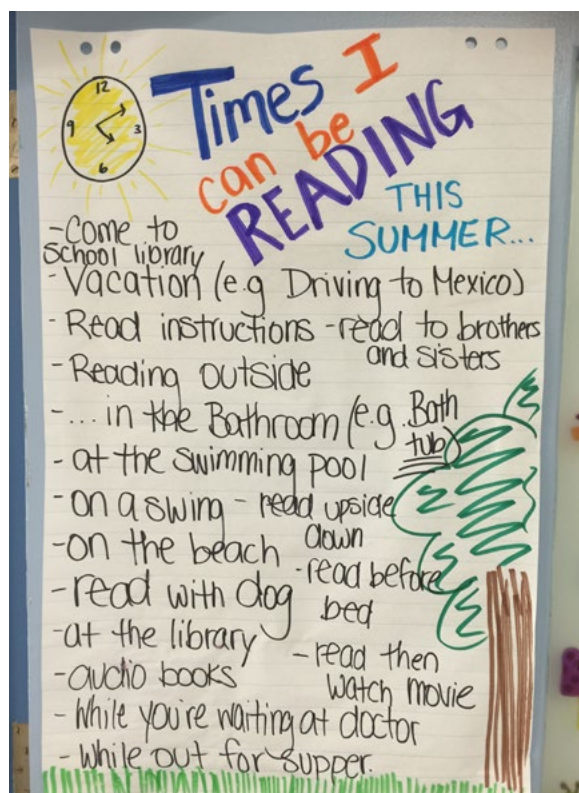 12
9 3
6
Times I
can be
READING
THIS
SUMMER...
-Come to
School library
-Vacation (e.g Driving to Mexico)
-Read instructions -read to brothers
and sisters
-Reading outside
-... in the Bathroom (e.g. Bath
tub)
-at the swimming pool
-on a swing -read upside
down
-on the beach
-read before
bed
-read with dog
-at the library
-read then
watch movie
-audio books
-While you're waiting at doctor
-While out for supper.